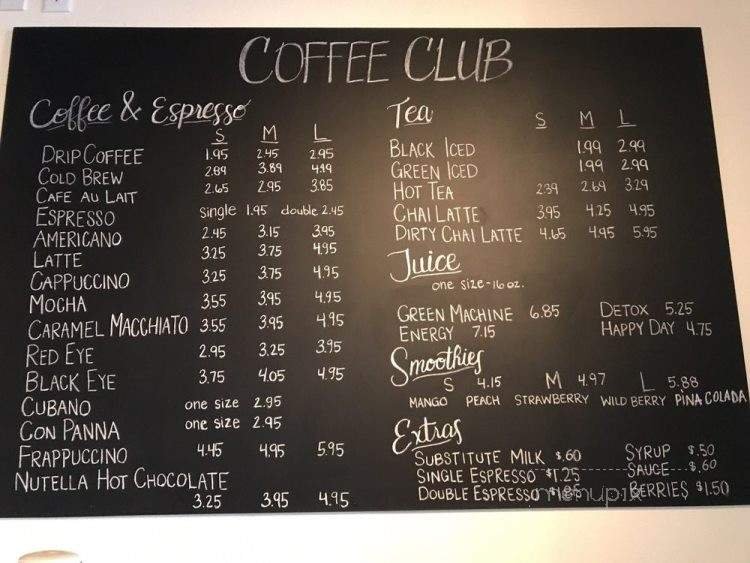 COFFEE CLUB
Coffee & Espresso
S M L
DRIP COFFEE 1.95 2.45 2.95
COLD BREW 2.89 3.89 4.49
CAFE AU LAIT 2.65 2.95 3.85
ESPRESSO single 1.95 double 2.45
AMERICANO 2.45 3.15 3.95
LATTE 3.25 3.75 4.95
CAPPUCCINO 3.25 3.75 4.95
MOCHA 3.55 3.95 4.95
CARAMEL MACCHIATO 3.55 3.95 4.95
RED EYE 2.95 3.25 3.95
BLACK EYE 3.75 4.05 4.95
CUBANO one size 2.95
CON PANNA one size 2.95
FRAPPUCCINO 4.45 4.95 5.95
NUTELLA HOT CHOCOLATE
3.25 3.95 4.95
Tea
S M L
BLACK ICED 1.99 2.99
GREEN ICED 1.99 2.99
HOT TEA 2.39 2.69 3.29
CHAI LATTE 3.95 4.25 4.95
DIRTY CHAI LATTE 4.65 4.95 5.95
Juice
one size-16 oz.
GREEN MACHINE 6.85 DETOX 5.25
ENERGY 7.15 HAPPY DAY 4.75
Smoothies
S 4.15 M 4.97 L 5.88
MANGO PEACH STRAWBERRY WILD BERRY PINA COLADA
Extras
SUBSTITUTE MILK $.60 SYRUP $.50
SINGLE ESPRESSO $1.25 SAUCE $.60
DOUBLE ESPRESSO $1.85 BERRIES $1.50
menupix